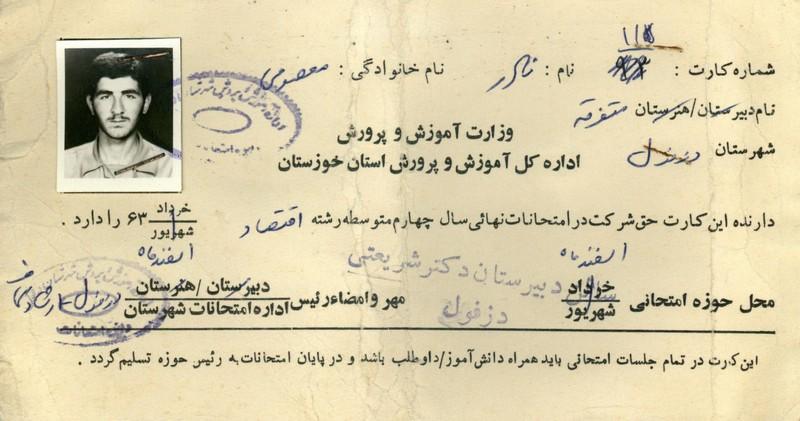 ۱۱۸
شماره کارت : نام : نادر نام خانوادگی : معصومی
نام دبیرستان/هنرستان متفرقه
وزارت آموزش و پرورش
شهرستان دزفول
اداره کل آموزش و پرورش استان خوزستان
دارنده این کارت حق شرکت در امتحانات نهائی سال چهارم متوسطه رشته اقتصاد خرداد شهریور ۶۳ را دارد .
اسفند ماه اسفند ماه
محل حوزه امتحانی خرداد شهریور دبیرستان دکتر شریعتی دزفول مهر و امضاء رئیس دبیرستان / هنرستان اداره امتحانات شهرستان دزفول
این کارت در تمام جلسات امتحانی باید همراه دانش‌آموز/داوطلب باشد و در پایان امتحانات به رئیس حوزه تسلیم گردد .